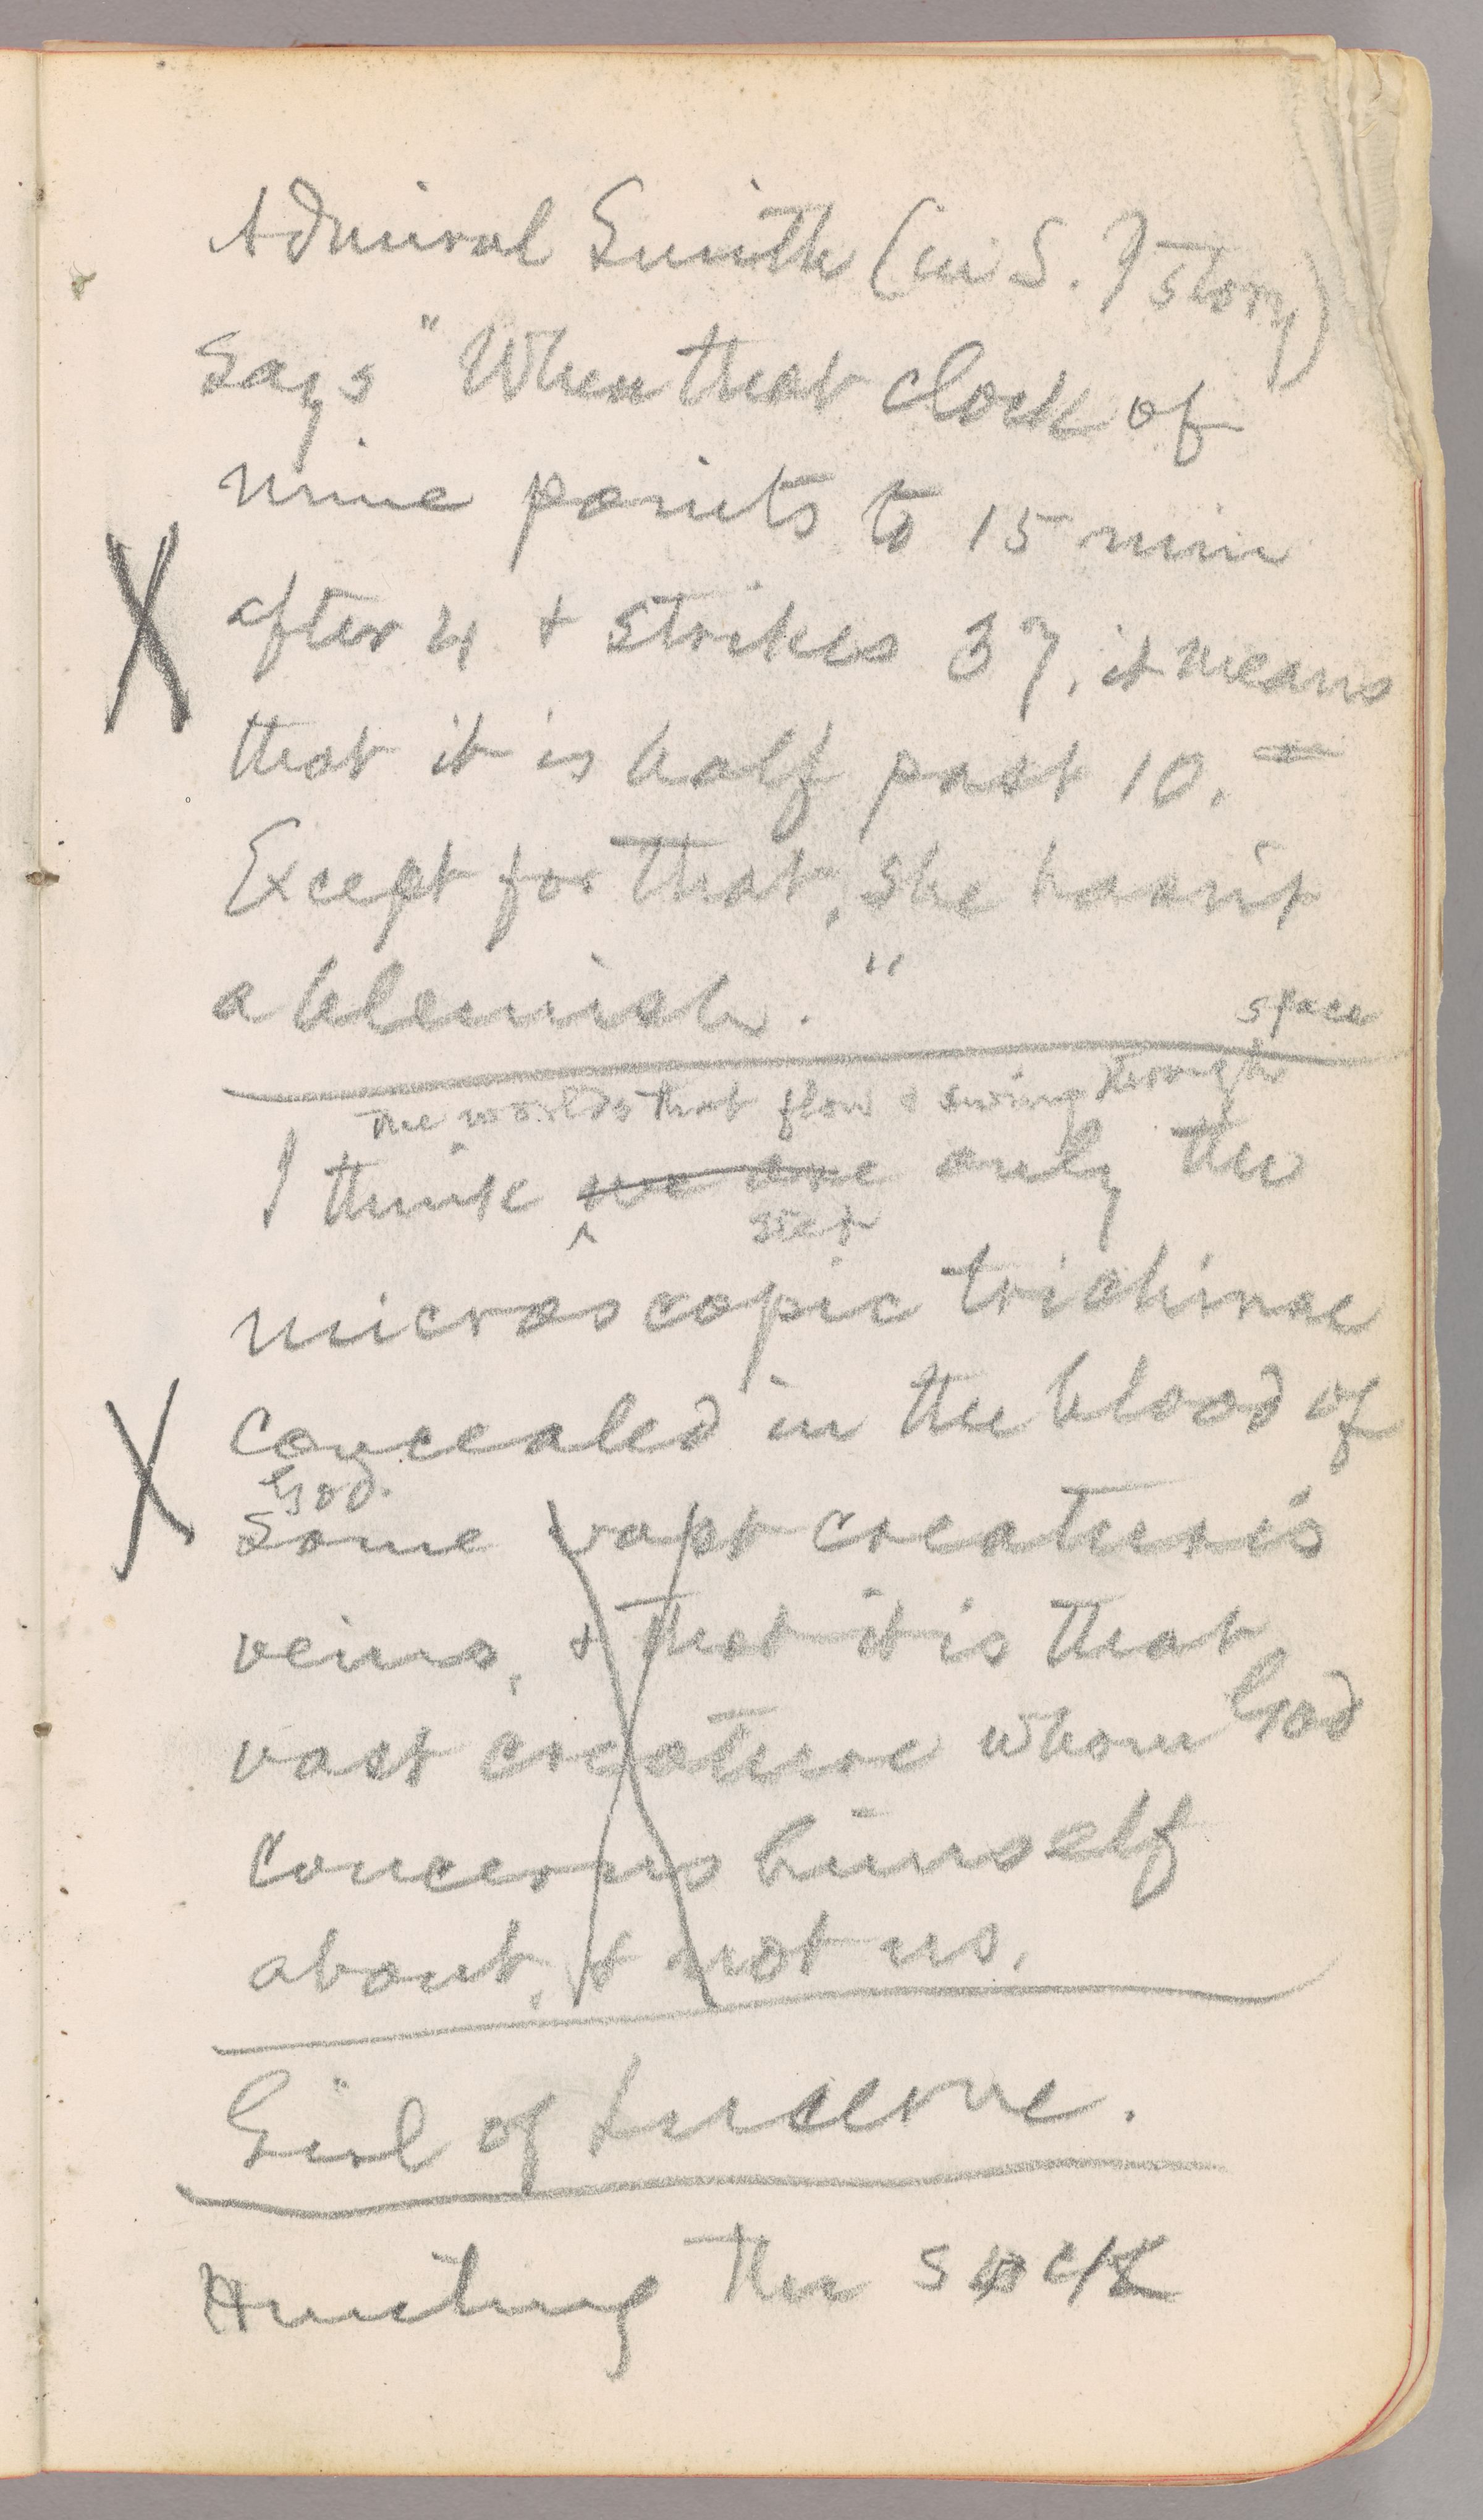 Admiral Smith (in S. I story)
says "When that clock of
mine points to 15 min
after 4 + strikes 37, it means
that it is half past 10. —
Except for that, she hasn't
a blemish."
space
the worlds that flow & swing through
I think we are only the
stet
microscopic trichinae
concealed in the blood of
God.
some vast creature's
veins, + that it is that
vast creature whom God
concerns himself
about, & not us.
Girl of Lucerne.
Hunting the sock